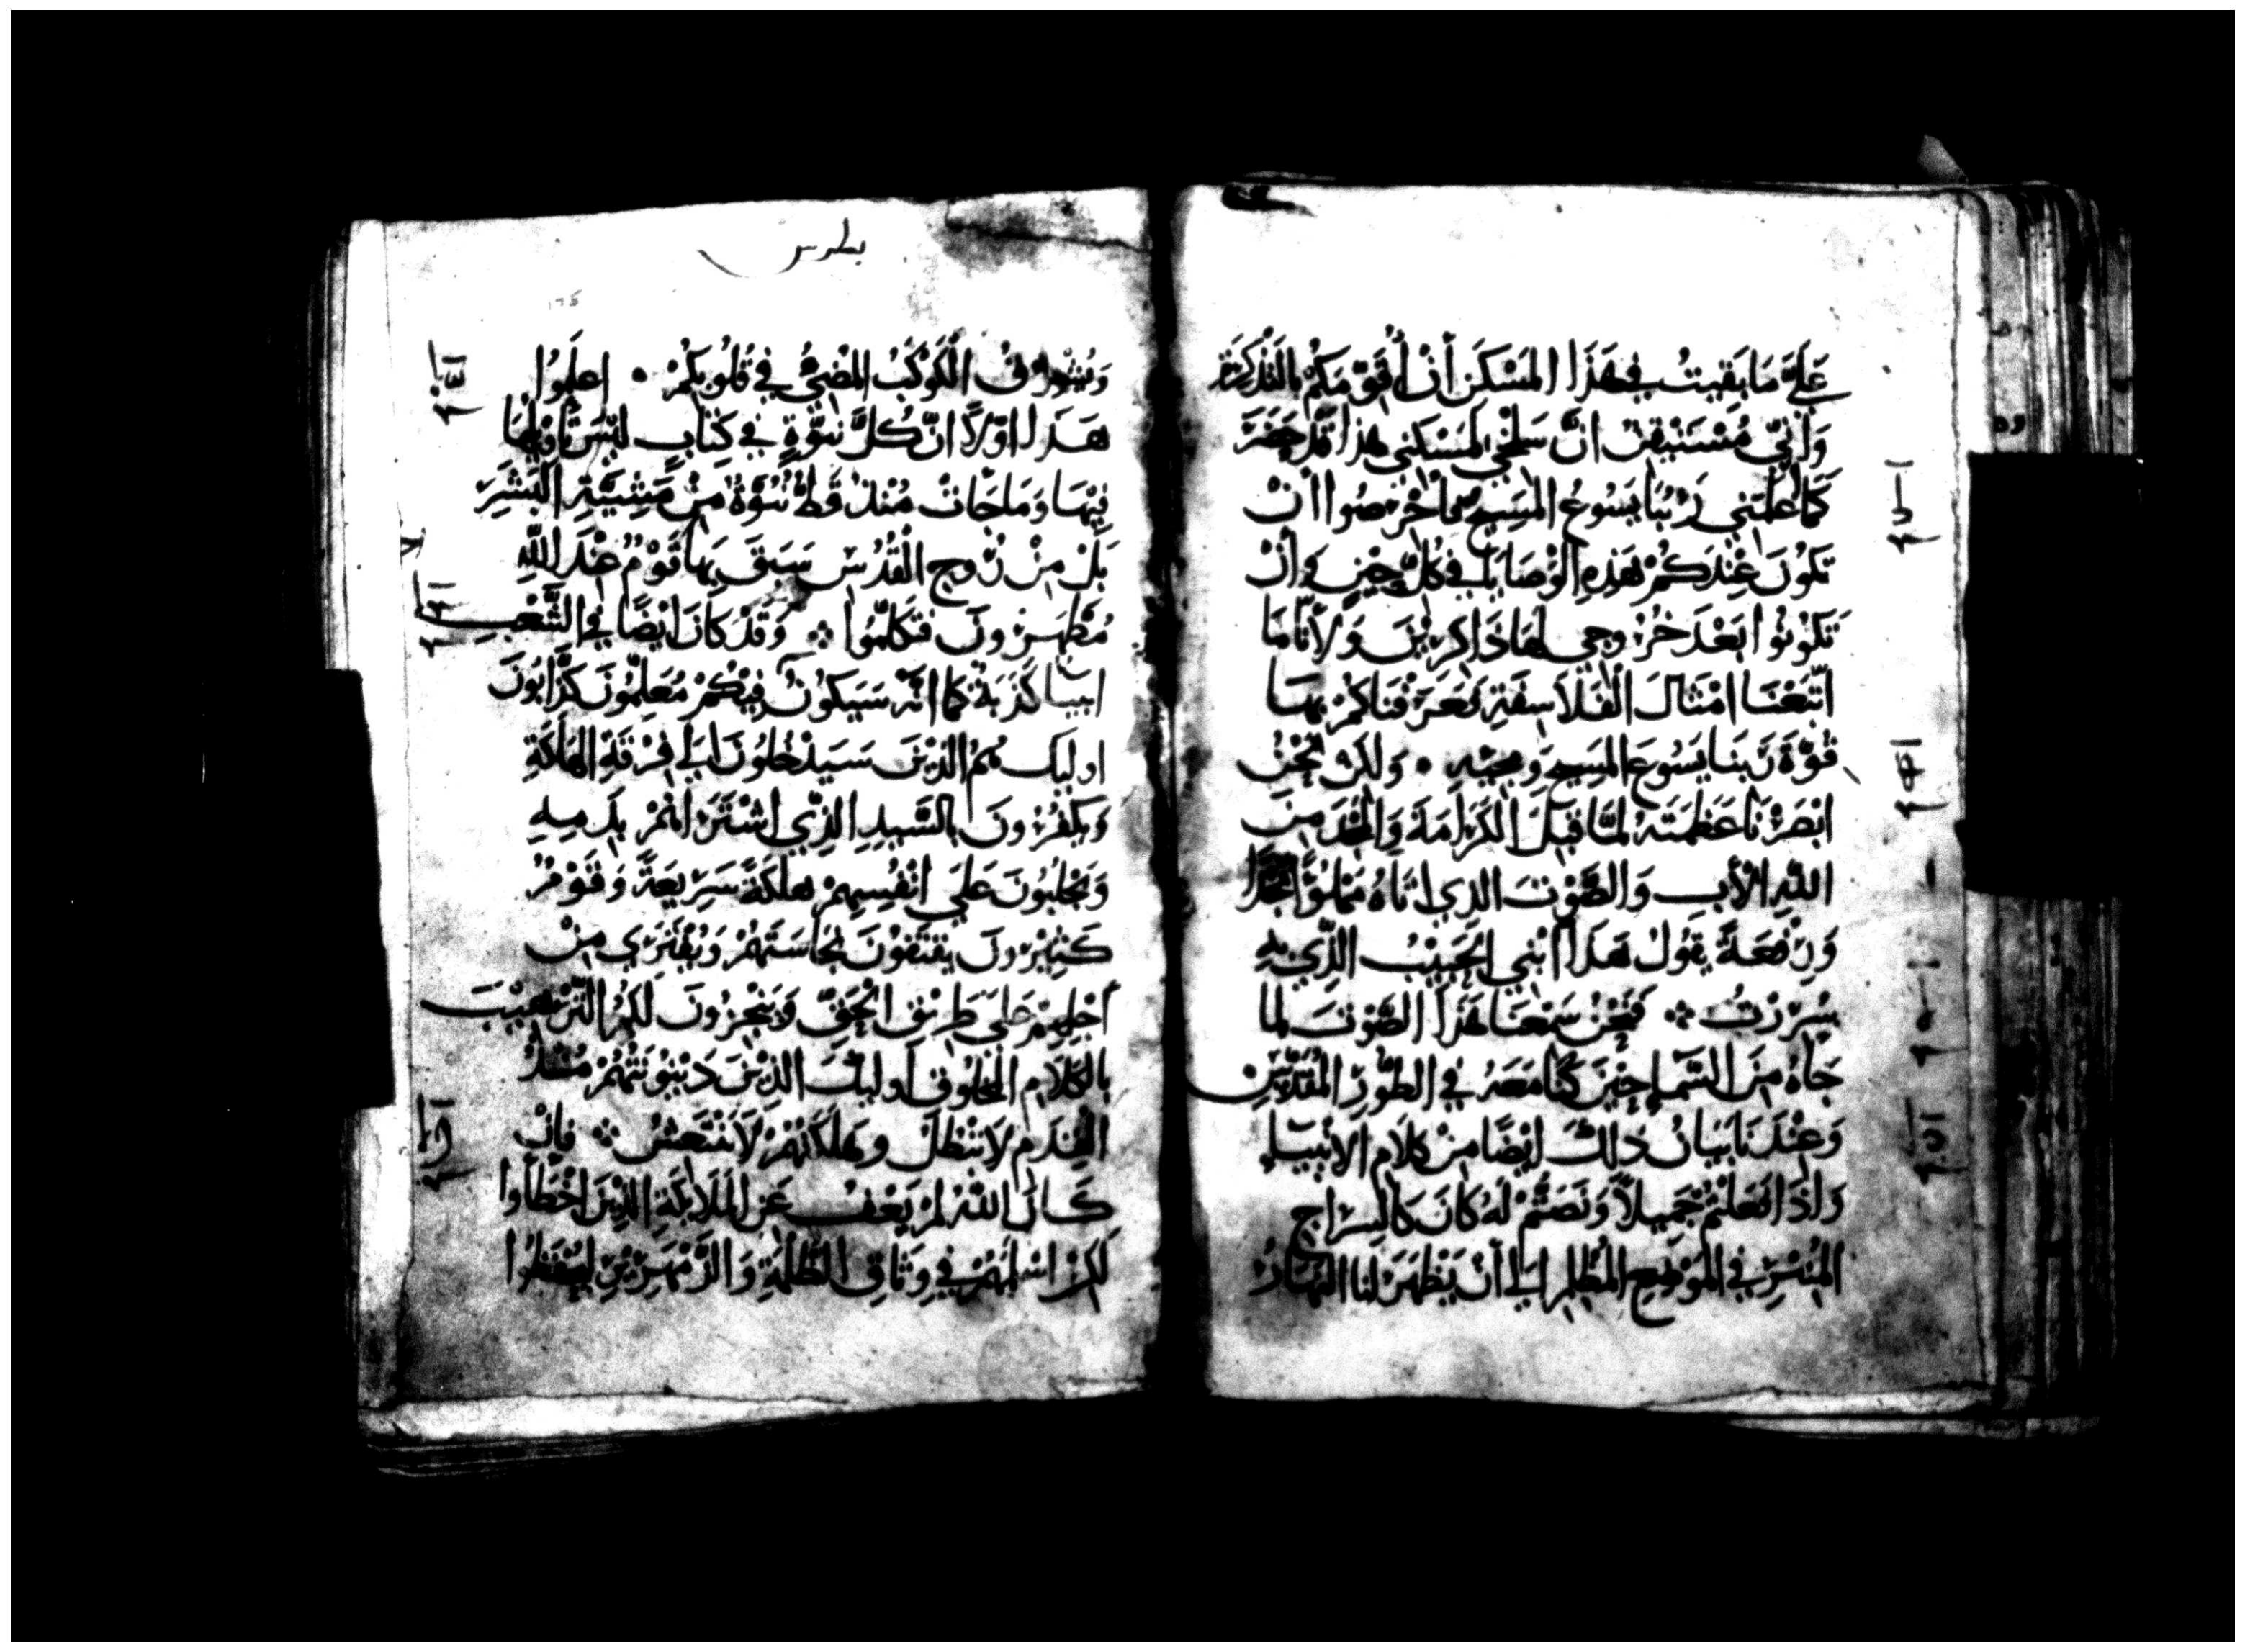 عَلَيَّ مَا بَقِيتُ فِي هَذَا المَسْكَنِ أَنْ أُفَوِّقَكُمْ بِالتَّذْكِرَةِ
وَأَنِّي مُسْتَيْقِنٌ انَّ سَلْخِي لِمَسْكَنِي هذا قَدْ حَضَرَ
كَمَا عَلَّمَنِي رَبُّنَا يَسُوعُ المَسِيح فَاحْرِصُوا انْ
تَكُونَ عِنْدَكُمْ هَذِهِ الوْصَايَا فِي كُلِّ حِينٍ وَانْ
تَكُونُوا بَعْدَ خُرُوجِي لهَا ذَاكِرِيْنَ وَلأَنَّا مَا
اتَّبَعْنَا امْثَالَ الْفَلاَسِفَةِ فَعَرَّفْنَاكُمْ بِهَا
قُوَّةَ رَبِّنَا يَسُوعَ المَسِيحِ وَمَجِيِّهِ • وَلكِنْ نَحْنُ
ابْصَرْنَا عَظَمَتَهُ لمَّا قَبِلَ الْكَرَامَةَ وَالمَجْدَ مِنَ
اللَّهِ الأَبِ وَالصَّوْتَ الذِي اتَاهُ مَمْلُوًّا مَجْدًا
وَرِفْعَةً يَقُولُ هَذَا ابْنِي الحَبِيْبُ الذِّي بِهِ
سُرِرْتُ ܀ فَنَحْنُ سَمْعَنَا هَذَا الصَّوْتَ لما
جَاهُ مِنَ السَّمَاءِ حِيْنَ كُنَّا مَعَهُ فِي الطُّورِ المُقَدَّسِ
وَعِنْدَنَا بَيَانُ ذلِكَ ايْضًا مِنْ كَلاَمِ الانْبِيَاءِ
وَاذَا فَعَلْتُمْ جَمِيلاً وَنَصَتُّمْ لَهُ كَانَ كَالسِرَاجِ
المُنِيْرِ فِي المَوْضِعِ المُظْلِمِ الَي أَنْ يَظْهَرَ لنا النَهَارُ
بطرس
وَيُشْرِقُ الْكَوْكَبُ المُضِيُّ فِي قُلُوبِكُمْ • اعلَمُوا
هَذَا اوَّلاً انَّ كُلَّ نُبُوَّةٍ فِي كِتَابٍ لَيْسَ تَأوِيْلُهَا
فِيْهَا وَمَا جَاتْ مُنْذُ قَطُّ نُبُوَّةٌ مِنْ مَشِيَّةِ البَشَرِ
بَلْ مِنْ رُوحِ الْقُدُسِ سَبَقَ بِهَا قَوْمٌ عِنْدَ اللَّهِ
مُطَهَّرُونَ فَتَكَلَّمُوا ܀ وَقَدْ كَانَ ايْضًا فِي الشَّعْبِ
انبيَا كَذَبَةٌ كما انَّهُ سَيَكُونُ فِيْكُمْ مُعَلِّمُونَ كَذَّابُونَ
اوليَك هُمُ الذِيْنَ سَيَدْخُلُونَ الَي فِرْقَةِ الهَلَكَةِ
وَيَكْفُرُونَ بالسَّيِّدِ الذِّي اشْتَرَاهُمْ بِدَمِهِ
وَيَجْلِبُونَ عَلَي انْفُسِهِمْ هَلَكَةً سَرِيعَةً وَقَوْمٌ
كَثِيْرُونَ يَقْتَفُونَ نَجَاسَتَهُمْ وَيُفْتَرَي مِنْ
أَجْلِهِمْ عَلَي طَرِيْقِ الْحَقِّ وَيَتَّجِرُونَ لَكُمُ
بالكَلاَمِ المَخْلُوقِ اوليك الذِيْنَ دَيْنُونَتُهُمْ مُنْذُ
القِدَمِ لاَ تَبْطُلُ وهَلَكَتُهُمْ لاَ تَنْعَسُ ܀ فَإنْ
كَانَ اللهُ لمْ يَعْفُ عَنِ المَلاَيِكَةِ الذِيْنَ اخْطَاوا
لَكِنْ اسْلَمَهُمْ فِي وَثَاقِ الظُّلْمَةِ وَالزَّمْهَرِيْرِ ليُحْفَظُوا